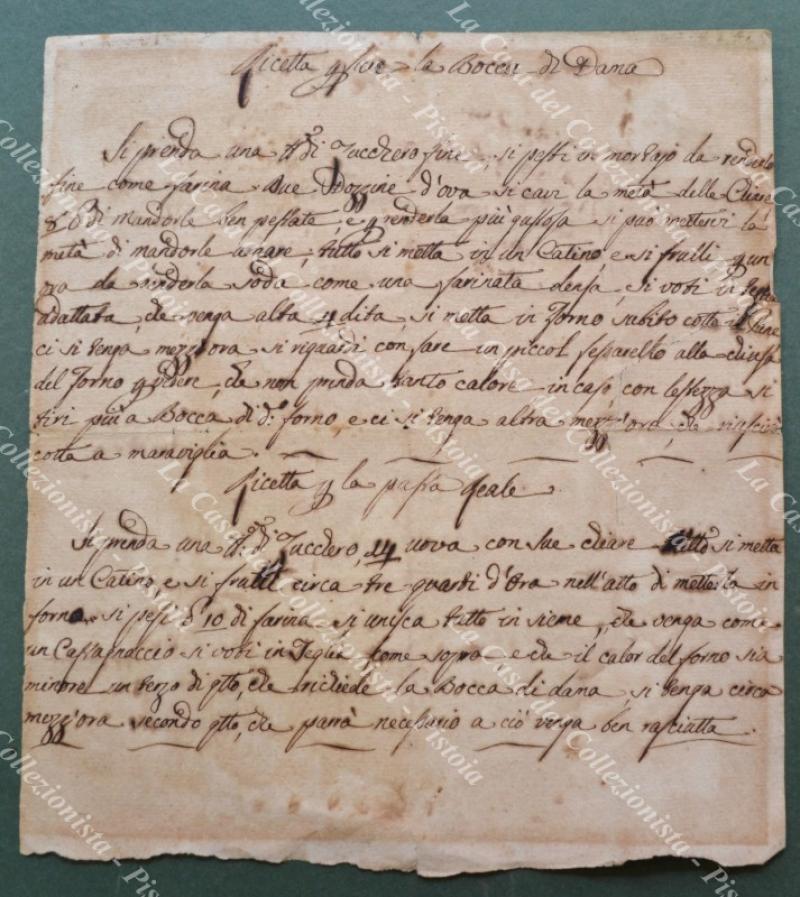 Ricetta p fare la Bocca di Dama
Si prenda una lb.ª di Zucchero fine, si pesti in mortajo da renderlo
fine come farina Due Dozzine d'ova si cavi la metà delle Chiare
6 di mandorle ben pestate, e p renderla più gustosa si può mettervi la
metà di mandorle amare, tutto si metta in un Catino, e si frulli p un
ora da renderla soda come una farinata densa, si voti in teglia
adattata, che venga alta dita, si metta in forno subito cotto il Pane
ci si tenga mezz'ora si riguardi con fare un piccol fessarello alla chiusa
del forno p vedere, che non prenda tanto calore in caso, con lestezza si
tiri più a Bocca di d.º forno, e ci si tenga altra mezz'ora, che riuscirà
cotta a maraviglia.
Ricetta p la pasta Reale.
Si prenda una lb.ª di Zucchero, 14 uova con sue chiare tutto si metta
in un Catino, e si frulli circa tre quarti d'Ora nell'atto di metterla in
forno si pesi 10 di farina si unisca tutto insieme, che venga come
un Castagnaccio si voti in Teglia come sopra e che il calor del forno sia
minore un terzo di qto, che richiede la Bocca di dama, si tenga circa
mezz'ora secondo qto, che parrà necessario a ciò venga ben rasciutta.
La Casa del Collezionista - Pistoia